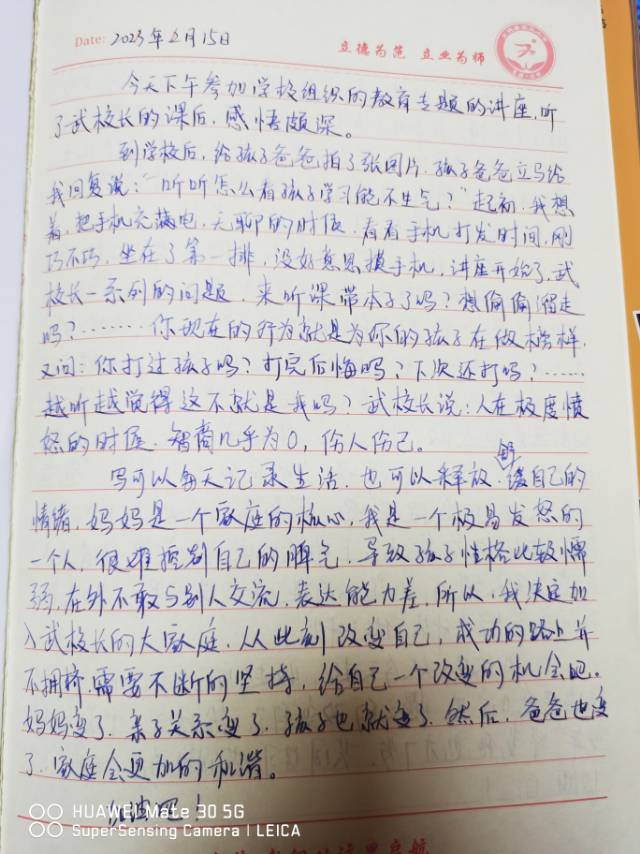 Date: 2023年2月15日
立德为范 立业为师
今天下午参加学校组织的教育专题的讲座,听
了武校长的课后,感悟颇深。
到学校后,给孩子爸爸拍了张图片,孩子爸爸立马给
我回复说:"听听怎么看孩子学习能不生气?"起初,我想
着,把手机充满电,无聊的时候,看看手机打发时间,刚
巧不巧,坐在了第一排,没好意思摸手机,讲座开始了,武
校长一系列的问题,来听课带本子了吗?想偷偷溜走
吗?……你现在的行为就是为你的孩子在做榜样,
又问:你打过孩子吗?打完后悔吗?下次还打吗?……
越听越觉得这不就是我吗?武校长说:人在极度愤
怒的时候,智商几乎为0,伤人伤己。
写可以每天记录生活,也可以释放、缓解自己的
情绪,妈妈是一个家庭的核心,我是一个极易发怒的
一个人,很难控制自己的脾气,导致孩子性格比较懦
弱,在外不敢与别人交流,表达能力差,所以,我决定加
入武校长的大家庭,从此刻改变自己,成功的路上并
不拥挤,需要不断的坚持,给自己一个改变的机会吧。
妈妈变了,亲子关系变了,孩子也就变了,然后,爸爸也变
了,家庭会更加的和谐。
加油吧!
HUAWEI Mate 30 5G
SuperSensing Camera | LEICA